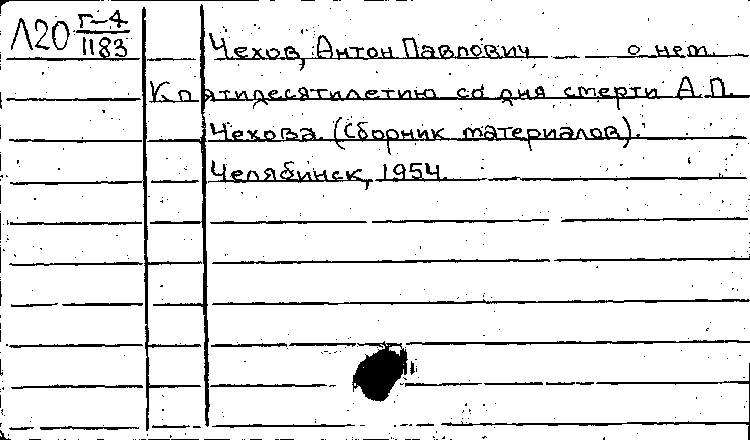 Л20 Г-4
1183
Чехов, Антон Павлович о нем.
К пятидесятилетию со дня смерти А.П.
Чехова. (Сборник материалов).
Челябинск, 1954.